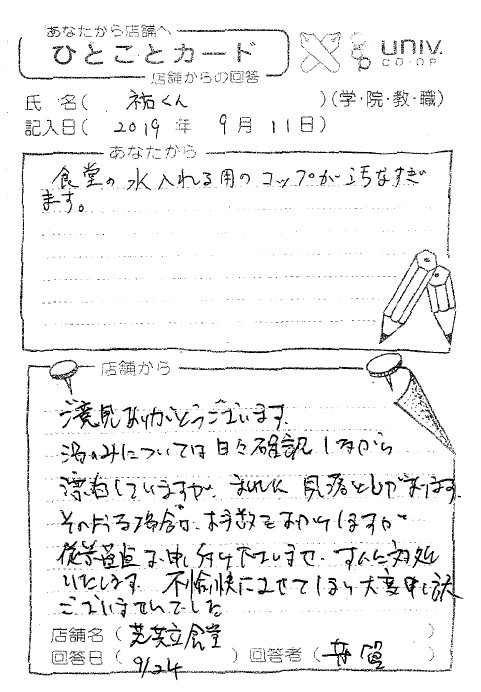 あなたから店舗へ
ひとことカード
店舗からの回答
univ.
CO-OP
氏名( 祐くん )(学・院・教・職)
記入日( 2019年 9月 11日)
あなたから
食堂の水入れる用のコップが汚なすぎ
ます。
店舗から
ご意見ありがとうございます。
湯のみについては日々確認しながら
漂白していますが、まれに見落としがあります。
そのような場合は、お手数をおかけしますが
従業員まで申し付け下さいませ。すぐに対処
いたします。不愉快にさせてしまい大変申し訳
ございませんでした
店舗名( 芝共立食堂 )
回答日( 9/24 ) 回答者( )